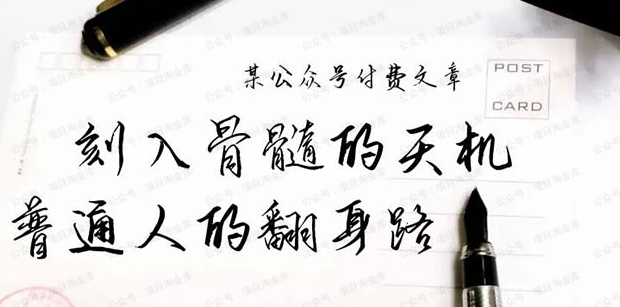 某公众号付费文章
POST
CARD
刻入骨髓的天机
普通人的翻身路
公众号:项目淘金库